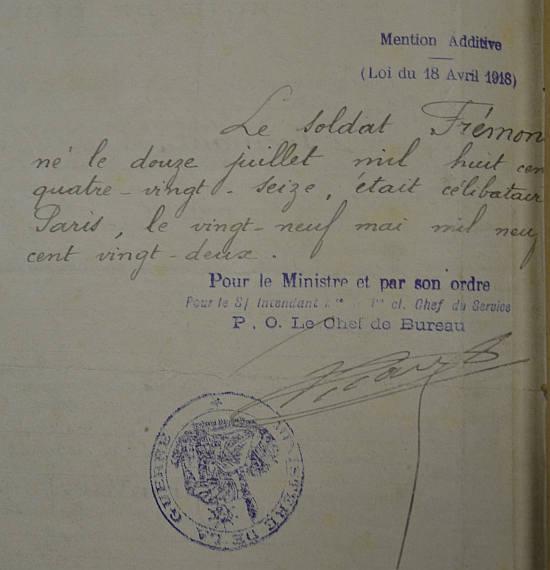 Mention Additive
(Loi du 18 Avril 1918)
Le soldat Frémon
né le douze juillet mil huit cen
quatre-vingt-seize, était célibatair
Paris, le vingt-neuf mai mil neuf
cent vingt-deux.
Pour le Ministre et par son ordre
Pour le S/ Intendant cl. Chef du Service
P. O. Le Chef de Bureau
MINISTERE DE LA GUERRE